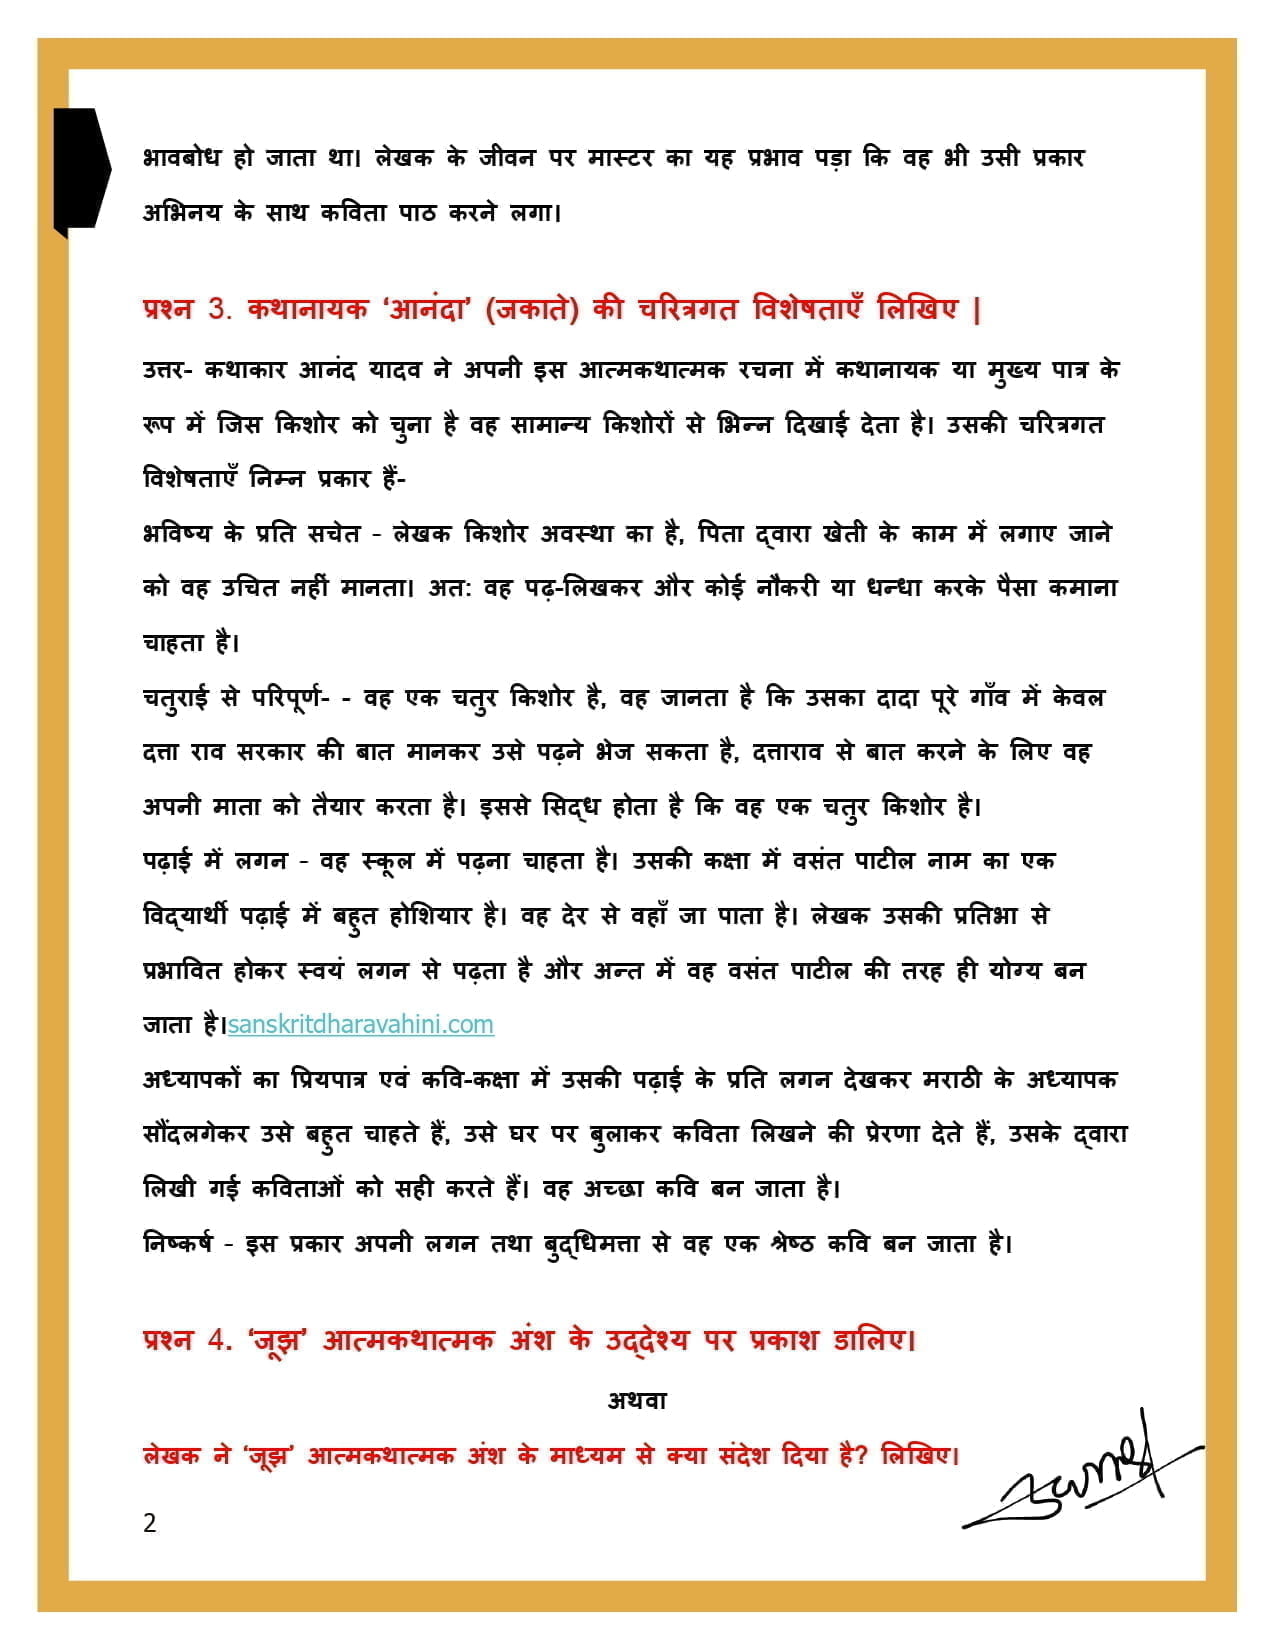 भावबोध हो जाता था। लेखक के जीवन पर मास्टर का यह प्रभाव पड़ा कि वह भी उसी प्रकार
अभिनय के साथ कविता पाठ करने लगा।
प्रश्न 3. कथानायक ‘आनंदा’ (जकाते) की चरित्रगत विशेषताएँ लिखिए |
उत्तर- कथाकार आनंद यादव ने अपनी इस आत्मकथात्मक रचना में कथानायक या मुख्य पात्र के
रूप में जिस किशोर को चुना है वह सामान्य किशोरों से भिन्न दिखाई देता है। उसकी चरित्रगत
विशेषताएँ निम्न प्रकार हैं-
भविष्य के प्रति सचेत - लेखक किशोर अवस्था का है, पिता द्वारा खेती के काम में लगाए जाने
को वह उचित नहीं मानता। अत: वह पढ़-लिखकर और कोई नौकरी या धन्धा करके पैसा कमाना
चाहता है।
चतुराई से परिपूर्ण- - वह एक चतुर किशोर है, वह जानता है कि उसका दादा पूरे गाँव में केवल
दत्ता राव सरकार की बात मानकर उसे पढ़ने भेज सकता है, दत्ताराव से बात करने के लिए वह
अपनी माता को तैयार करता है। इससे सिद्ध होता है कि वह एक चतुर किशोर है।
पढ़ाई में लगन - वह स्कूल में पढ़ना चाहता है। उसकी कक्षा में वसंत पाटील नाम का एक
विद्यार्थी पढ़ाई में बहुत होशियार है। वह देर से वहाँ जा पाता है। लेखक उसकी प्रतिभा से
प्रभावित होकर स्वयं लगन से पढ़ता है और अन्त में वह वसंत पाटील की तरह ही योग्य बन
जाता है।sanskritdharavahini.com
अध्यापकों का प्रियपात्र एवं कवि-कक्षा में उसकी पढ़ाई के प्रति लगन देखकर मराठी के अध्यापक
सौंदलगेकर उसे बहुत चाहते हैं, उसे घर पर बुलाकर कविता लिखने की प्रेरणा देते हैं, उसके द्वारा
लिखी गई कविताओं को सही करते हैं। वह अच्छा कवि बन जाता है।
निष्कर्ष - इस प्रकार अपनी लगन तथा बुद्धिमत्ता से वह एक श्रेष्ठ कवि बन जाता है।
प्रश्न 4. ‘जूझ’ आत्मकथात्मक अंश के उद्देश्य पर प्रकाश डालिए।
अथवा
लेखक ने ‘जूझ’ आत्मकथात्मक अंश के माध्यम से क्या संदेश दिया है? लिखिए।
2